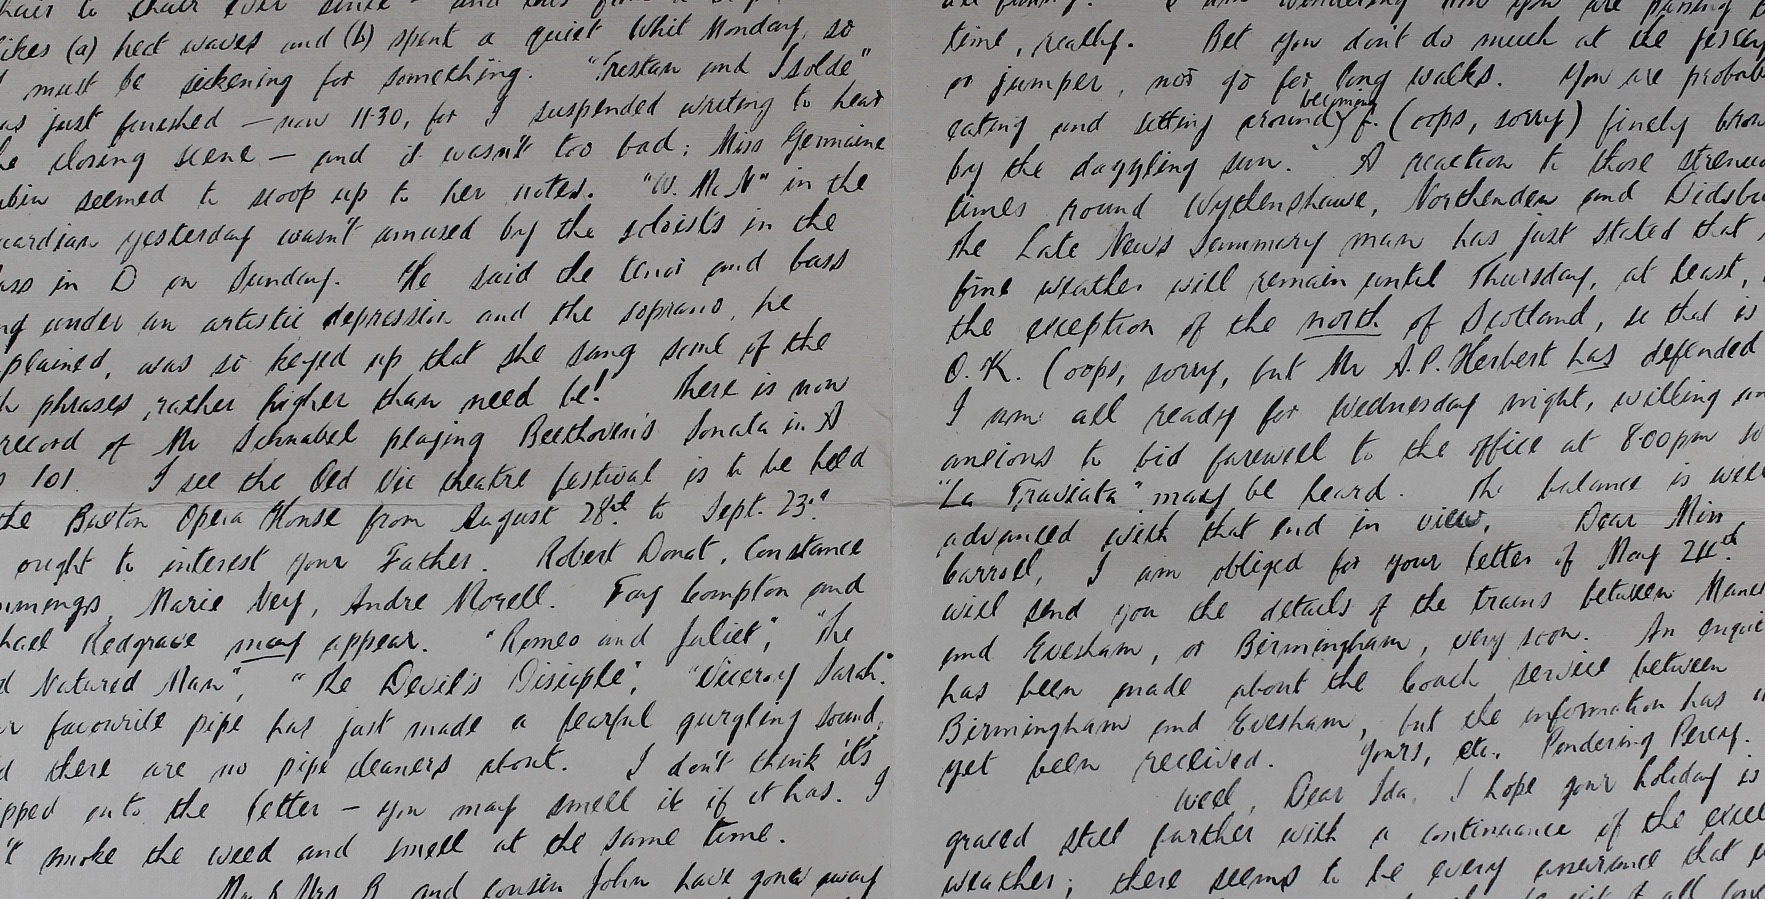 hair to chair ever since - and
likes (a) heat waves and (b) spent a quiet Whit Monday, so
I must be sickening for something. "Tristan and Isolde"
has just finished - now 11-30, for I suspended writing to hear
the closing scene - and it wasn't too bad; Miss Germaine
ubin seemed to scoop up to her notes. "W. McN" in the
uardian yesterday wasn't amused by the soloists in the
ass in D on Sunday. He said the tenor and bass
ng under an artistic depression and the soprano, he
plained, was so keyed up that she sang some of the
h phrases rather higher than need be! There is now
record of Mr Schnabel playing Beethoven's Sonata in A
p 101. I see the Old Vic theatre festival is to be held
the Buxton Opera House from August 28th to Sept. 23rd
ought to interest your Father. Robert Donat, Constance
mmings, Marie Ney, Andre Morell. Fay Compton and
hael Redgrave may appear. "Romeo and Juliet", "The
d Natured Man", "The Devil's Disciple", "Viceroy Sarah".
r favourite pipe has just made a fearful gurgling sound,
d there are no pipe cleaners about. I don't think it's
pped onto the letter - you may smell it if it has. I
't smoke the weed and smell at the same time.
Mr & Mrs B and cousin John have gone away
I am wondering how you are passing
time, really. Bet you don't do much at the jersey
or jumper, nor go for long walks. You are probab
eating and sitting around becoming f. (oops, sorry) finely brow
by the dazzling sun. A reaction to those strenuo
times round Wythenshawe, Northenden and Didsbu
The Late News Summary man has just stated that
fine weather will remain until Thursday, at least,
the exception of the north of Scotland, so that is
O.K. (oops, sorry, but Mr A.P. Herbert has defended
I am all ready for Wednesday night, willing an
anxious to bid farewell to the office at 8.00pm so
"La Traviata" may be heard. The balance is well
advanced with that end in view. Dear Miss
Carroll, I am obliged for your letter of May 24th.
will send you the details of the trains between Manc
and Evesham, or Birmingham, very soon. An enqui
has been made about the Coach service between
Birmingham and Evesham, but the information has
yet been received. Yours, etc., Pondering Percy.
Well, Dear Ida, I hope your holiday is
graced still further with a continuance of the excel
weather; there seems to be every assurance that